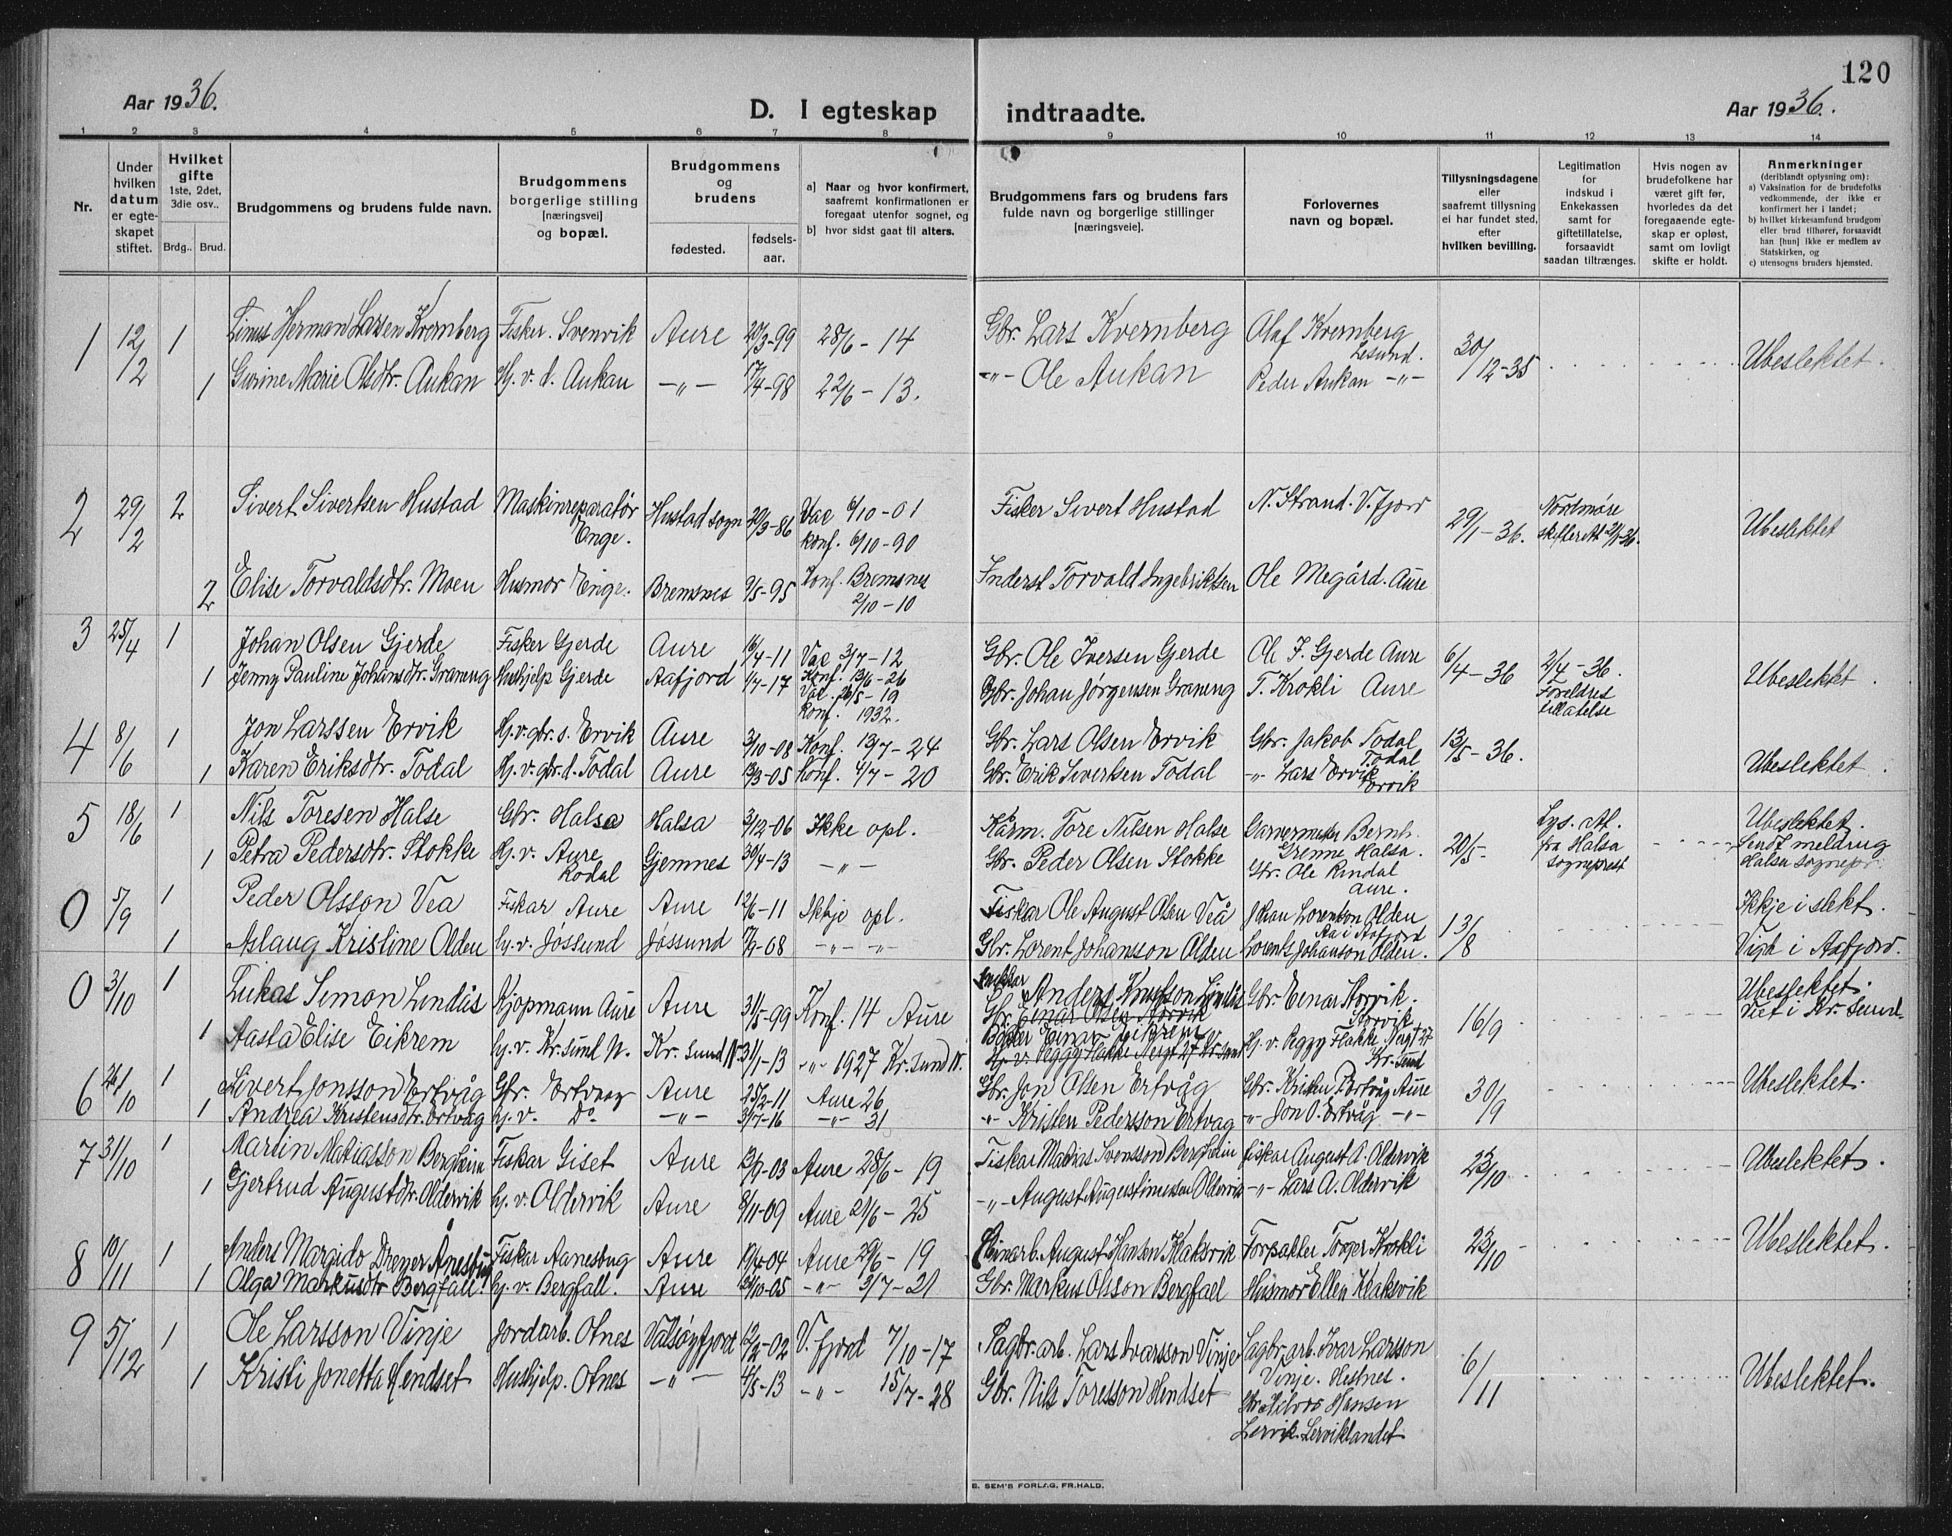 120
Aar 1936.
D. I egteskap indtraadte.
Aar 1936.
1 2 3 4 5 6 7 8 9 10 11 12 13 14
Nr.
Under hvilken datum er egte-skapet stiftet.
Hvilket gifte 1ste, 2det, 3die osv..
Brdg..
Brud.
Brudgommens og brudens fulde navn.
Brudgommens borgerlige stilling [næringsvei] og bopæl.
Brudgommens og brudens
fødested.
fødsels-aar.
a) Naar og hvor konfirmert, saafremt konfirmationen er foregaat utenfor sognet, og
b) hvor sidst gaat til alters.
Brudgommens fars og brudens fars fulde navn og borgerlige stillinger [næringsvei].
Forlovernes navn og bopæl.
Tillysningsdagene eller saafremt tillysning ei har fundet sted, efter hvilken bevilling.
Legitimation for indskud i Enkekassen samt for giftetillatelse, forsaavidt saadan tiltrænges.
Hvis nogen av brudefolkene har været gift før, hvorledes da det foregaaende egte-skap er opløst, samt om lovligt skifte er holdt.
Anmerkninger (deriblandt oplysning om):
a) Vaksination for de brudefolks vedkommende, der ikke er konfirmert her i landet;
b) hvilket kirkesamfund brudgom eller brud tilhører, forsaavidt han [hun] ikke er medlem av Statskirken, og
c) utensogns bruders hjemsted.
1 12/2 1 Linus Herman Larsen Kvernberg Fisker. Svenvik Aure 20/3-99 28/6-14 Gbr. Lars Kvernberg Olaf Kvernberg Lesund. 30/12-35 Ubeslektet.
1 Gurine Marie Olsdtr. Aukan Hj. v. d. Aukan -"- 17/4-98 22/6-13. -"- Ole Aukan Peder Aukan -"-
2 29/2 2 Sivert Sivertsen Hustad Maskinreparatør Enge. Hustad sogn 20/3-86 Vac 6/10-01 Konf. 6/10-90 Fisker Sivert Hustad N. Strand. V.fjord 29/1-36. Nordmøre skifterett 21/1-36. Ubeslektet
2 Elise Torvaldsdtr. Moen Husmor Enge. Bremsnes 9/5-95 Konf. Bremsnes 2/10-10 Inderst Torvald Ingebriktsen Ole Megård. Aure
3 25/4 1 Johan Olsen Gjerde Fisker Gjerde Aure 16/4-11 Vac 3/7-12 Konf. 13/6-26 Gbr. Ole Iversen Gjerde Ole J. Gjerde Aure 6/4-36 2/4-36. Foreldres tillatelse Ubeslektet.
1 Jenny Pauline Johansdtr. Graneng Hushjelp Gjerde Aafjord 1/7-17 Vac. 26/5-19 Konf. 1932. Gbr. Johan Jørgensen Graneng T. Krokli Aure
4 8/6 1 Jon Larssen Ervik Hj.v. gbr. s. Ervik Aure 3/10-08 Konf. 13/7-24 Gbr. Lars Olsen Ervik Gbr. Jakob Todal Todal 13/5-36. Ubeslektet.
1 Karen Eriksdtr. Todal Hj. v. gbr. d. Todal Aure 13/3-05 Konf. 4/7-20 Gbr. Erik Sivertsen Todal -"- Lars Ervik Ervik
5 18/6 1 Nils Toresen Halse Gbr. Halsa Halsa 3/12-06 Ikke opl. Kårm. Tore Nilsen Halse Garnermester Bernh. Grenne Halsa. 20/5- Lys. At. fra Halsa sogneprest Ubeslektet. Sendt meldring Halsa sognepr.
1 Petra Pedersdtr. Stokke Hj. v. Aure Rodal Gjemnes 30/4-13 -"- Gbr. Peder Olsen Stokke Gbr. Ole Rindal Aure.
0 5/9 1 Peder Olsson Vea Fiskar Aure Aure 12/6-11 Ikkje opl. Fiskar Ole August Olsen Veå Johan Lorentson Olden Aa i Aafjord 13/8 Ikkje i slekt.
1 Aslaug Kristine Olden hj. v. Jøssund Jøssund 17/9-08 -"- -"- Gbr. Lorent Johansson Olden Lorents Johanson Olden. Vigt i Aafjord.
0 3/10 1 Lukas Simon Lendås Kjøpmann Aure Aure 31/5-99 Konf. 14 Aure Snekkar Anders Knutson Lindås Gbr. Einar Olsen Storvik Gbr. Einar Storvik. Storvik 16/9 Ubeslektet. Viet i Kr. sund
1 Aasta Elise Eikrem hj. v. Kr.sund N. Kr. sund N. 31/1-13 -"- 1927 Kr. Sund N. Baker Einar Eikrem Hj. v. Peggy Flakke Seigt 27 Kr sund Hj. v. Peggy Flakke Seigt 27 Kr. sund
6 26/10 1 Sivert Jonsson Ertvåg Gbr. Ertvaag Aure 25/2-11 Aure 26 Gbr. Jon Olsen Ertvåg Gbr. Kristen P. Ertvåg Aure 30/9 Ubeslektet.
1 Andrea Kristensdtr. Ertvåg hj. v. Do -"- 31/7-16 -"- 31 -"- Kristen Pedersson Ertvag -"- Jon O. Ertvåg -"-
7 31/10 1 Martin Matiasson Bergheim Fiskar Giset Aure 13/9-03 Aure 28/6-19 Fiskar Mathias Svensson Bergheim Fiskar August A. Oldervik 23/10 Ubeslektet.
1 Gjertrud Augustdtr. Oldervik hj. v. Oldervik Aure 8/11-09 Aure 21/6-25 -"- August Augustinussen Oldervik -"- Lars A. Oldervik
8 10/11 1 Anders Margido Dreyer Ånesbug Fiskar Aanesbug Aure 19/4-04 Aure 29/6-19 Linarb. August Hansen Klaksvik Forpakter Torger Krokli 23/10 Ubeslektet.
1 Olga Markusdtr Bergfall. hj. v. Bergfall. Aure 21/10-05 -"- 3/7-21 Gbr. Markus Olsson Bergfall Husmor Ellen Klaksvik
9 5/12 1 Ole Larsson Vinje Jordarb. Otnes Valsøyfjord 12/2-02 V. fjord 7/10-17 Sagbr. arb. Lars Ivarsson Vinje Sagbr. arb. Ivar Larsson Vinje. Hestnes. 6/11 Ubeslektet.
1 Kristi Jonetta Hendset Hushjelp. Otnes -"- 4/5-13 -"- 15/7-28 Gbr. Nils Toresson Hendset Gbr. Hilvor Hansen Lervik. Lerviklandet
E. SEM'S FORLAG, FR.HALD.